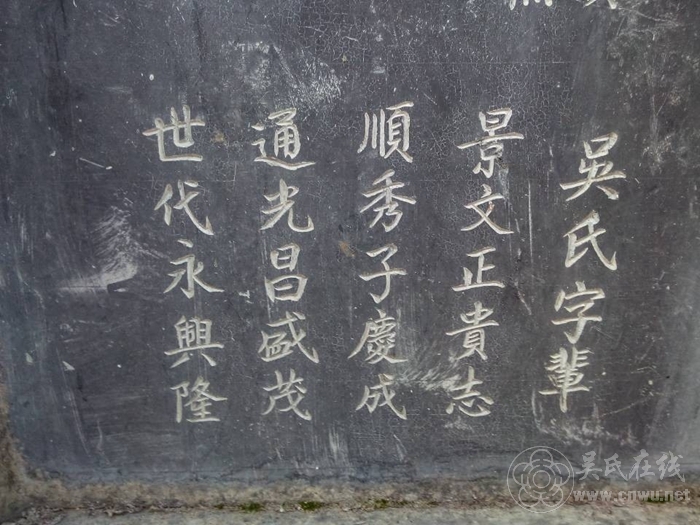 吳氏字輩
景文正貴志
順秀子慶成
通光昌盛茂
世代永興隆
吴氏在线
www.cnwu.net